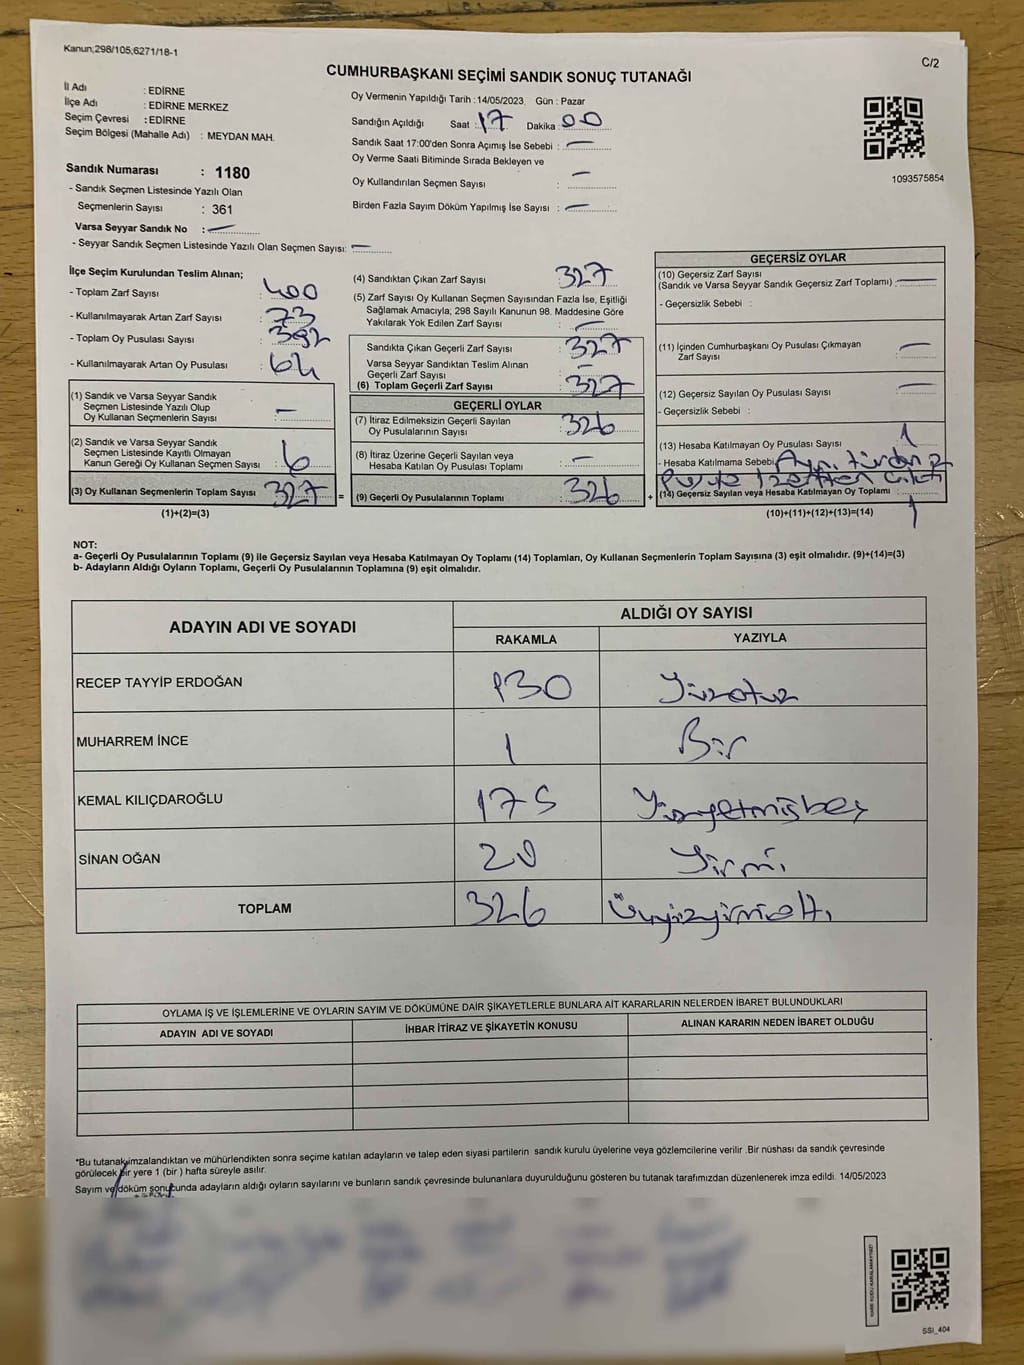 Kanun;298/105,6271/18-1
C/2
CUMHURBAŞKANI SEÇİMİ SANDIK SONUÇ TUTANAĞI
İl Adı : EDİRNE
İlçe Adı : EDİRNE MERKEZ
Seçim Çevresi : EDİRNE
Seçim Bölgesi (Mahalle Adı) : MEYDAN MAH.
Sandık Numarası : 1180
- Sandık Seçmen Listesinde Yazılı Olan
Seçmenlerin Sayısı : 361
Varsa Seyyar Sandık No : —
- Seyyar Sandık Seçmen Listesinde Yazılı Olan Seçmen Sayısı: —
Oy Vermenin Yapıldığı Tarih : 14/05/2023, Gün : Pazar
Sandığın Açıldığı Saat : 17 Dakika : 00
Sandık Saat 17:00'den Sonra Açımış İse Sebebi : —
Oy Verme Saati Bitiminde Sırada Bekleyen ve
Oy Kullandırılan Seçmen Sayısı : —
Birden Fazla Sayım Döküm Yapılmış İse Sayısı : —
1093575854
İlçe Seçim Kurulundan Teslim Alınan;
- Toplam Zarf Sayısı : 400
- Kullanılmayarak Artan Zarf Sayısı : 73
- Toplam Oy Pusulası Sayısı : 392
- Kullanılmayarak Artan Oy Pusulası : 64
(1) Sandık ve Varsa Seyyar Sandık
Seçmen Listesinde Yazılı Olup
Oy Kullanan Seçmenlerin Sayısı : —
(2) Sandık ve Varsa Seyyar Sandık
Seçmen Listesinde Kayıtlı Olmayan
Kanun Gereği Oy Kullanan Seçmen Sayısı : 6
(3) Oy Kullanan Seçmenlerin Toplam Sayısı : 327 =
(1)+(2)=(3)
(4) Sandıktan Çıkan Zarf Sayısı : 327
(5) Zarf Sayısı Oy Kullanan Seçmen Sayısından Fazla İse, Eşitliği
Sağlamak Amacıyla; 298 Sayılı Kanunun 98. Maddesine Göre
Yakılarak Yok Edilen Zarf Sayısı : —
Sandıkta Çıkan Geçerli Zarf Sayısı : 327
Varsa Seyyar Sandıktan Teslim Alınan
Geçerli Zarf Sayısı : —
(6) Toplam Geçerli Zarf Sayısı : 327
GEÇERLİ OYLAR
(7) İtiraz Edilmeksizin Geçerli Sayılan
Oy Pusulalarının Sayısı : 326
(8) İtiraz Üzerine Geçerli Sayılan veya
Hesaba Katılan Oy Pusulası Toplamı : —
(9) Geçerli Oy Pusulalarının Toplamı : 326 +
GEÇERSİZ OYLAR
(10) Geçersiz Zarf Sayısı
(Sandık ve Varsa Seyyar Sandık Geçersiz Zarf Toplamı) : —
- Geçersizlik Sebebi :
(11) İçinden Cumhurbaşkanı Oy Pusulası Çıkmayan
Zarf Sayısı : —
(12) Geçersiz Sayılan Oy Pusulası Sayısı : —
- Geçersizlik Sebebi :
(13) Hesaba Katılmayan Oy Pusulası Sayısı : 1
- Hesaba Katılmama Sebebi: Aynı türden 2
pusula zarftan çıktı
(14) Geçersiz Sayılan veya Hesaba Katılmayan Oy Toplamı : 1
(10)+(11)+(12)+(13)=(14)
NOT:
a- Geçerli Oy Pusulalarının Toplamı (9) ile Geçersiz Sayılan veya Hesaba Katılmayan Oy Toplamı (14) Toplamları, Oy Kullanan Seçmenlerin Toplam Sayısına (3) eşit olmalıdır. (9)+(14)=(3)
b- Adayların Aldığı Oyların Toplamı, Geçerli Oy Pusulalarının Toplamına (9) eşit olmalıdır.
ADAYIN ADI VE SOYADI ALDIĞI OY SAYISI
RAKAMLA YAZIYLA
RECEP TAYYİP ERDOĞAN 130 Yüzotuz
MUHARREM İNCE 1 Bir
KEMAL KILIÇDAROĞLU 175 Yüzyetmişbeş
SİNAN OĞAN 20 Yirmi
TOPLAM 326 Üçyüzyirmialtı
OYLAMA İŞ VE İŞLEMLERİNE VE OYLARIN SAYIM VE DÖKÜMÜNE DAİR ŞİKAYETLERLE BUNLARA AİT KARARLARIN NELERDEN İBARET BULUNDUKLARI
ADAYIN ADI VE SOYADI İHBAR İTİRAZ VE ŞİKAYETİN KONUSU ALINAN KARARIN NEDEN İBARET OLDUĞU
*Bu tutanak imzalandıktan ve mühürlendikten sonra seçime katılan adayların ve talep eden siyasi partilerin sandık kurulu üyelerine veya gözlemcilerine verilir .Bir nüshası da sandık çevresinde
görülecek bir yere 1 (bir ) hafta süreyle asılır.
Sayım ve döküm sonucunda adayların aldığı oyların sayılarını ve bunların sandık çevresinde bulunanlara duyurulduğunu gösteren bu tutanak tarafımızdan düzenlenerek imza edildi. 14/05/2023
KARE KODU KARALAMAYINIZ!
SSI_404